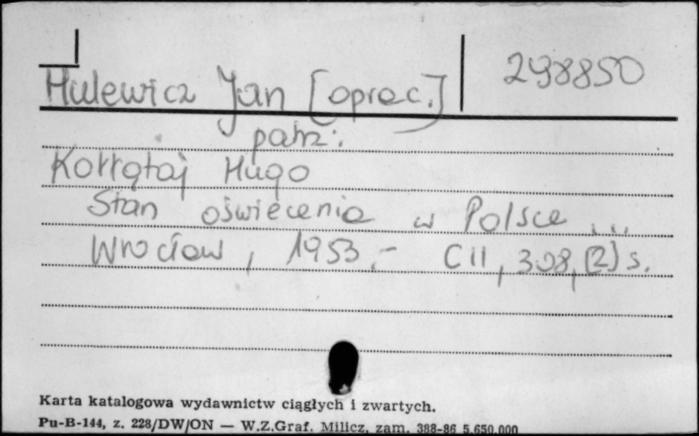 298850
Hulewicz Jan [oprac.]
patrz:
Kołłątaj Hugo
Stan oświecenia w Polsce ...
Wrocław, 1953.- CII, 308, [2] s.
Karta katalogowa wydawnictw ciągłych i zwartych.
Pu-B-144, z. 228/DW/ON — W.Z.Graf. Milicz, zam. 388-86 5.650.000